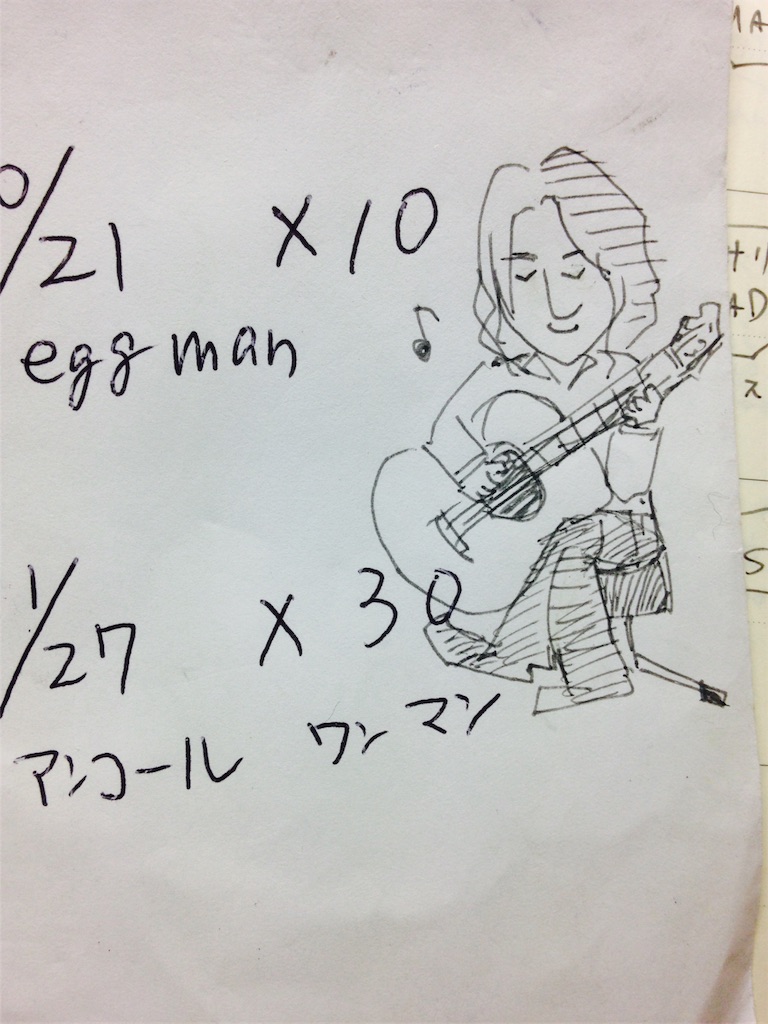 0/21 ×10
eggman
1/27 ×30
アンコール ワンマン